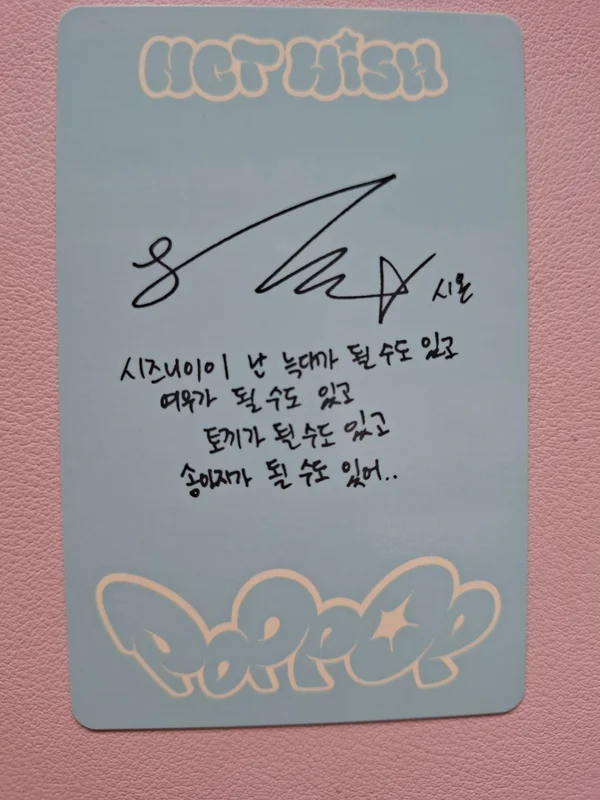 NCT WISH
시온
시즈니이이 난 늑대가 될 수도 있고
여우가 될 수도 있고
토끼가 될 수도 있고
송아지가 될 수도 있어..
POPPOP